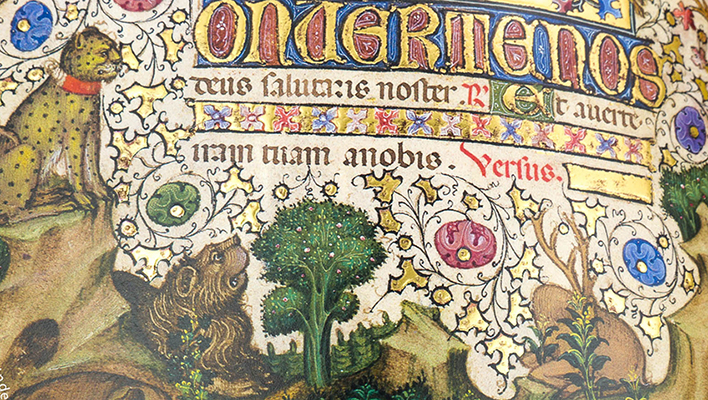 ONUERTENOS
deus salutaris noster. R. Et auerte
iram tuam a nobis. Versus.